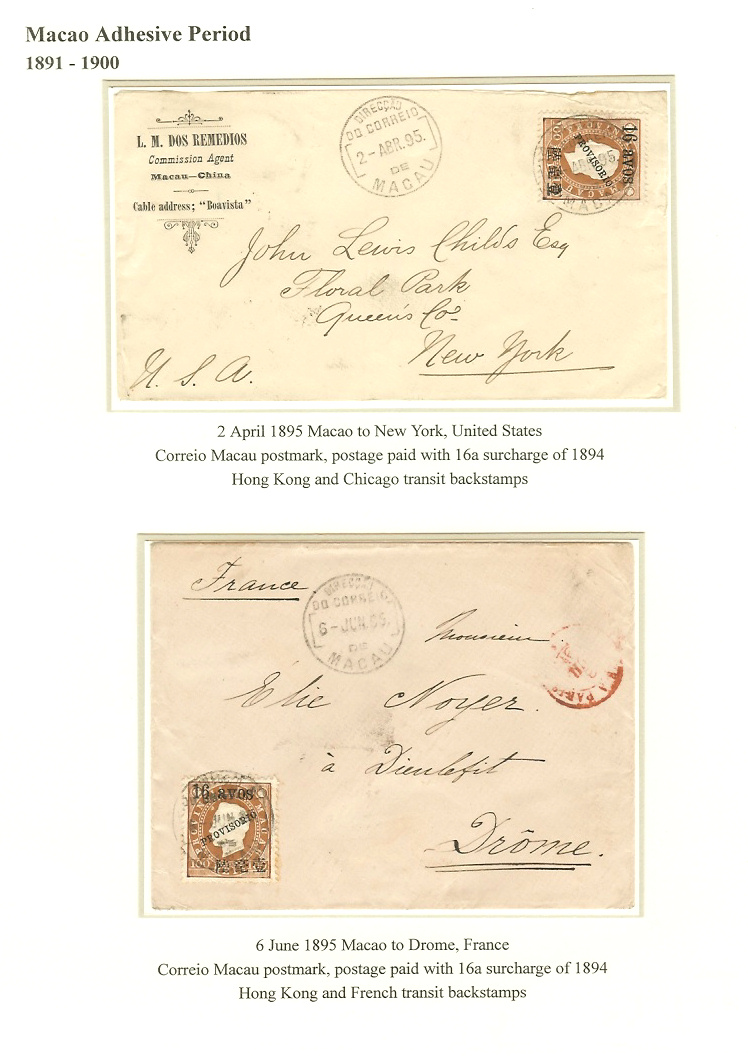 Macao Adhesive Period
1891 - 1900
L. M. DOS REMEDIOS
Commission Agent
Macau—China
Cable address; "Boavista"
DIRECÇÃO
DO CORREIO
2-ABR.95.
DE
MACAU
16 avos
PROVISORIO
John Lewis Childs Esq
Floral Park
Queen's Co.
New York
U. S. A.
2 April 1895 Macao to New York, United States
Correio Macau postmark, postage paid with 16a surcharge of 1894
Hong Kong and Chicago transit backstamps
France
DIRECÇÃO
DO CORREIO
6-JUN.95.
DE
MACAU
Monsieur
Elie Noyer.
à Dieulefit
Drôme.
16 avos
PROVISORIO
100
6 June 1895 Macao to Drome, France
Correio Macau postmark, postage paid with 16a surcharge of 1894
Hong Kong and French transit backstamps